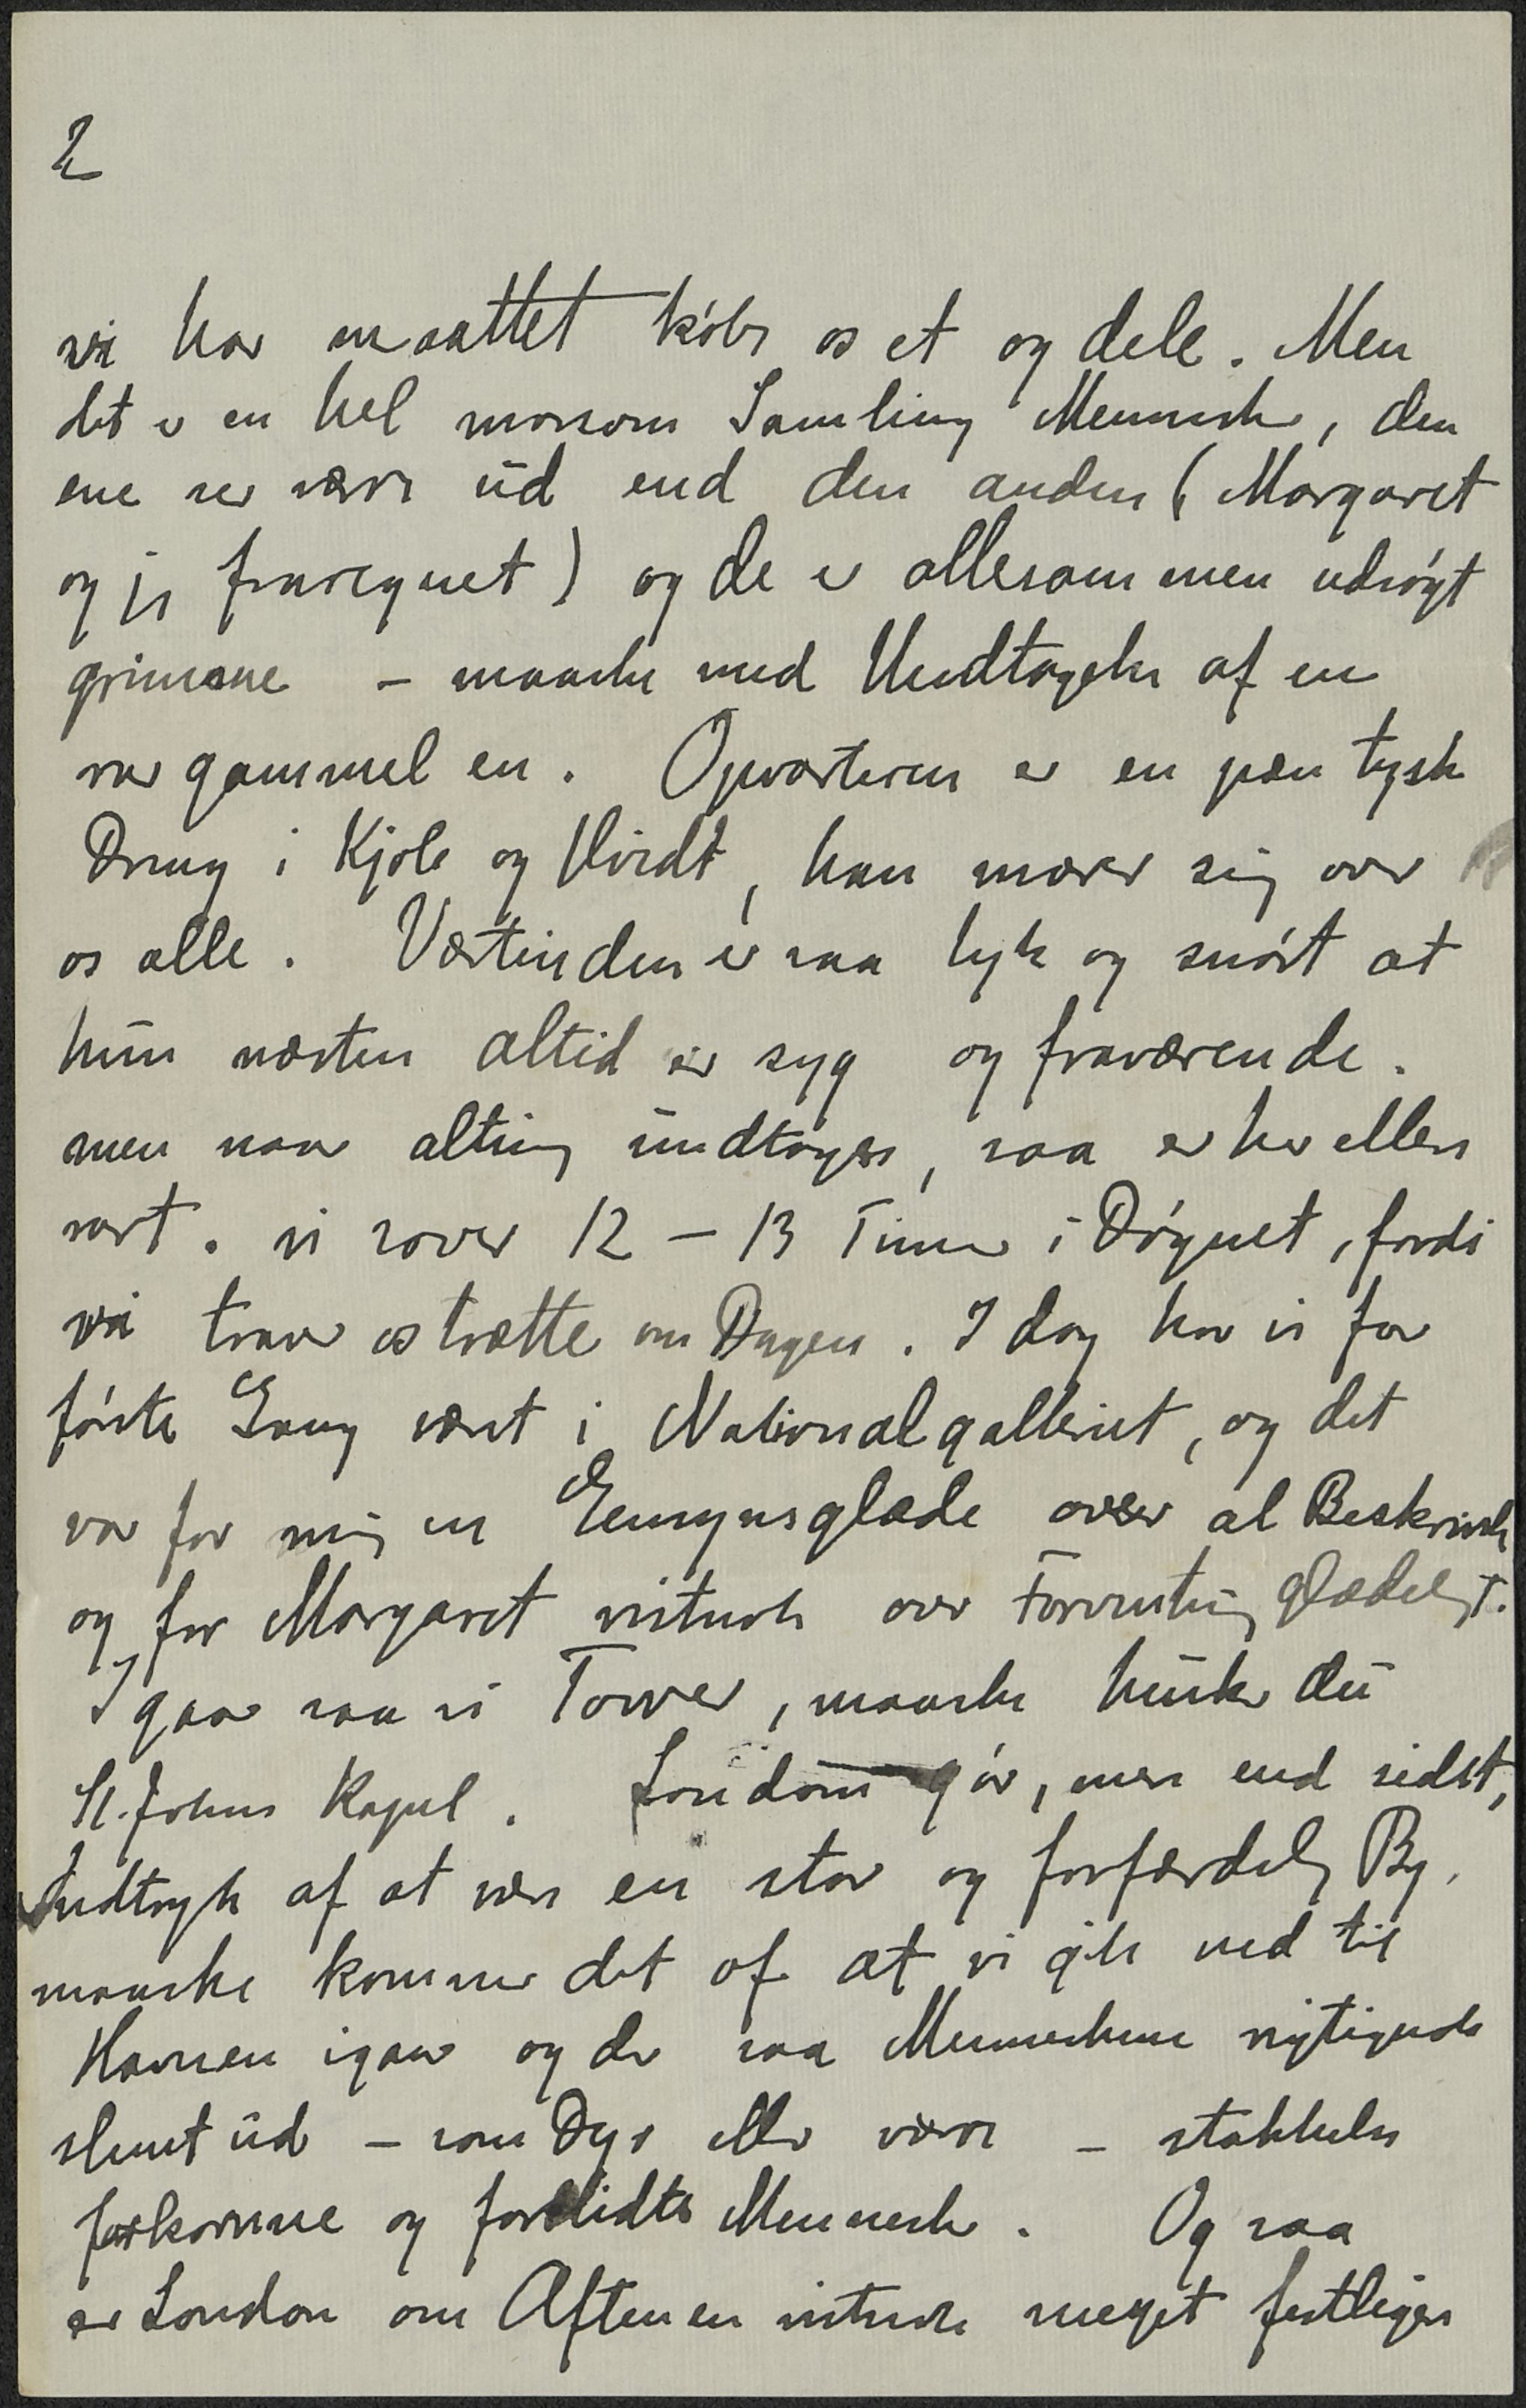 2
vi har maattet købe os et og dele. Men
det er en hel morsom Samling Mennesker, den
ene ser værre ud end den anden (Margaret
og jeg fraregnet) og de er allesammen udsøgt
grimme – maaske med Undtagelse af en
rar gammel en. Opvarteren er en pæn tysk
Dreng i Kjole og Hvidt, han morer sig over
os alle. Værtinden er saa tyk og snørt at
hun næsten altid er syg og fraværende.
men naar alting undtages, saa er her ellers
rart. vi sover 12 – 13 Timer i Døgnet, fordi
vi traver os trætte om Dagen. I dag har vi for
første Gang været i Nationalgalleriet, og det
var for mig en Gensynsglæde over al Beskrivelse
og for Margaret virkelig over Forventning glædeligt.
Igaar saa vi Tower, maaske husker du
St. Johns Kapel. London gør, mere end sidst,
Indtryk af at være en stor og forfærdelig By.
maaske kommer det af at vi gik ned til
Havnen igaar og der saa Menneskene rigtignok
slemt ud – som Dyr eller værre – stakkels
forkomne og forslidte Mennesker. Og saa
er London om Aftenen meget festligere